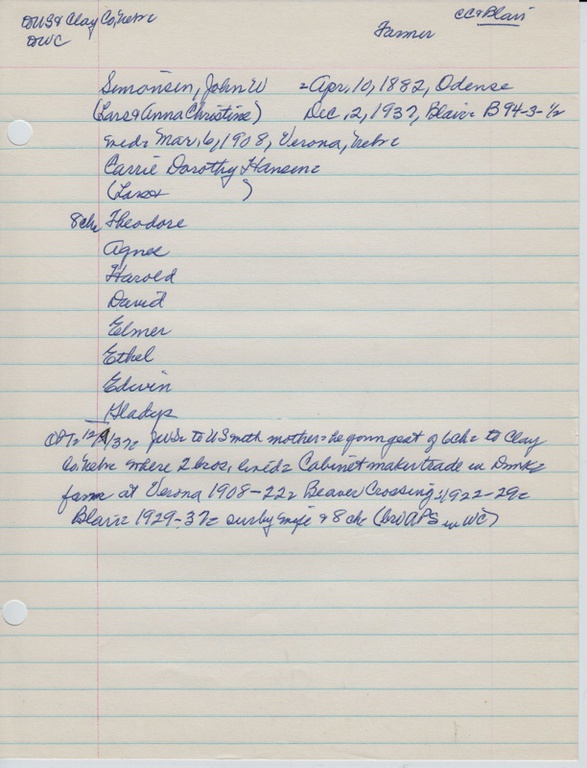 CC= Blair
DUS= Clay Co, Nebr=
DWC
Farmer
Simonsen, John W = Apr. 10, 1882, Odense
(Lars & Anna Christine) Dec. 2, 1937, Blair= B 94-3-½
md= Mar. 6, 1908, Verona, Nebr=
Carrie Dorothy Hansen=
(Lars & )
8ch= Theodore
Agnes
Harold
David
Elmer
Ethel
Edwin
Gladys
12/9/37= to US with mother= he youngest of 6ch= to Clay
Co, Nebr= where 2 bros. lived= Cabinet maker trade in Dmk=
farm at Verona 1908-22= Beaver Crossing, 1922-29=
Blair= 1929-37= surv by wife & 8 ch= (bro APS in WC)